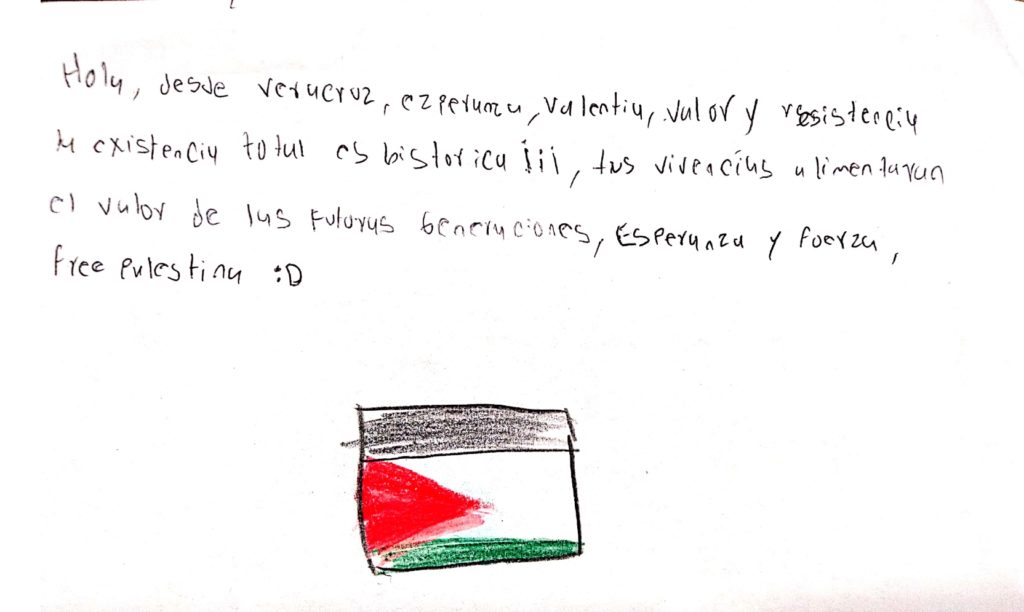 Hola, desde veracruz, ezperanza, valentia, valor y resistencia
existencia total es historica iii, tus vivencias alimentaran
el valor de las futuras generaciones, Esperanza y fuerza,
free palestina :D